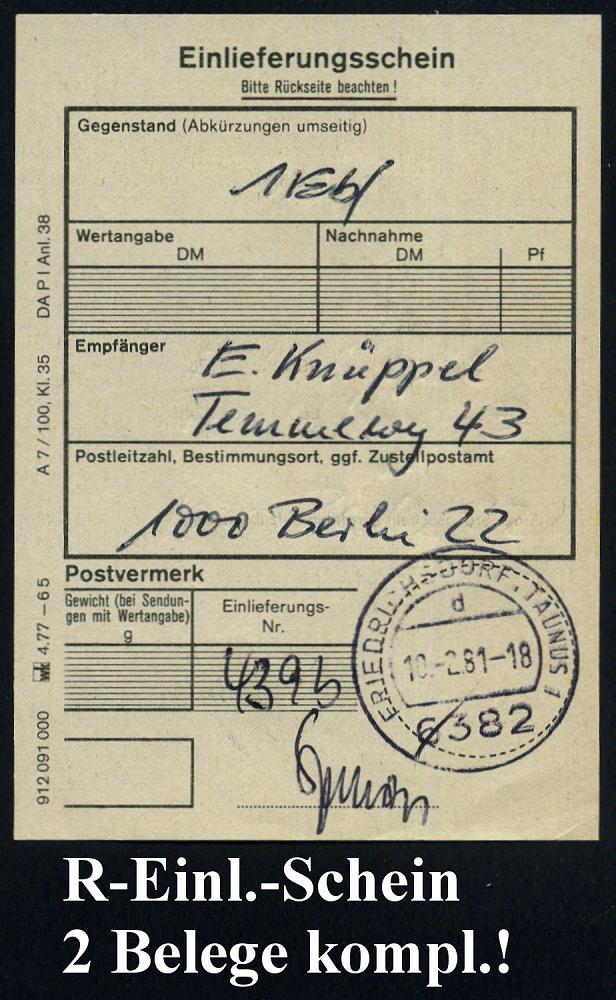 Einlieferungsschein
Bitte Rückseite beachten!
Gegenstand (Abkürzungen umseitig)
1 Ebf
Wertangabe
DM
Nachnahme
DM Pf
Empfänger
E. Knüppel
Temmeweg 43
Postleitzahl, Bestimmungsort, ggf. Zustellpostamt
1000 Berlin 22
Postvermerk
Gewicht (bei Sendun-
gen mit Wertangabe)
g
Einlieferungs-
Nr.
439b
FRIEDRICHSDORF, TAUNUS 1
d
10.-2.81-18
6382
912 091 000 wk 4.77 – 65 A 7 / 100, Kl. 35 DA P I Anl. 38
R-Einl.-Schein
2 Belege kompl.!